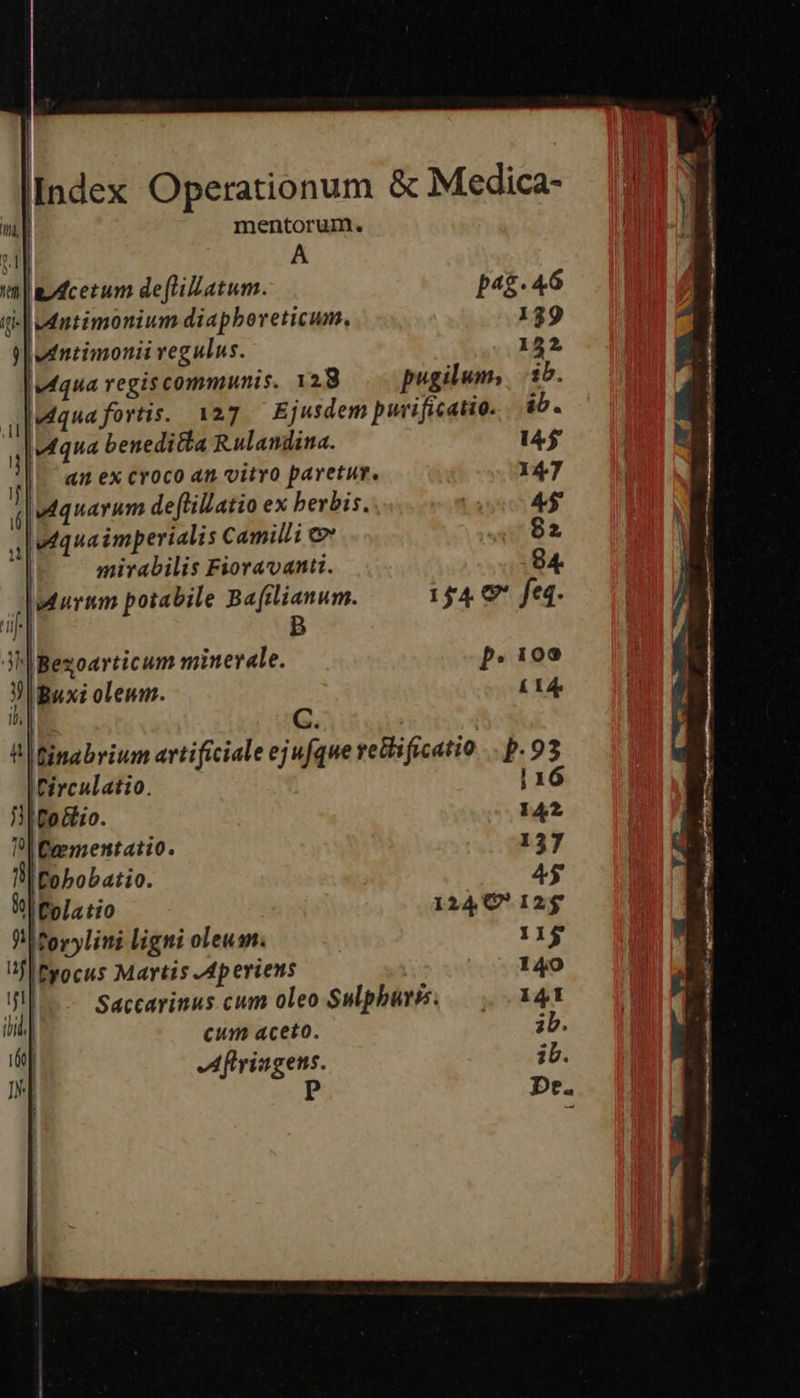 Index Operationum & Medica-
mentorum.
A
Acetum deſtillatum. pag. 46
Antimonium diaphoreticum. 139
Antimonii regulus. 132
Aqua regis communis. 128 pugilum, ib.
Aqua fortis. 127 Ejusdem purificatio. ib.
Aqua benedicta Rulandina. 145
an ex croco an vitro paretur. 147
Aquarum deſtillatio ex herbis. 45
Aqua imperialis Camilli & 82
mirabilis Fioravanti. 84
Aurum potabile Baſilianum. 154 & ſeq.
B
Bezoarticum minerale. p. 100
Buxi oleum. 114
C.
Cinabrium artificiale ejuſque rectificatio p. 93
Circulatio. 116
Coctio. 142
Cæmentatio. 137
Cohobatio. 45
Colatio 124 & 125
Corylini ligni oleum. 115
Crocus Martis Aperiens 140
Saccarinus cum oleo Sulphuris. 141
cum aceto. ib.
Aſtringens. ib.
P De.